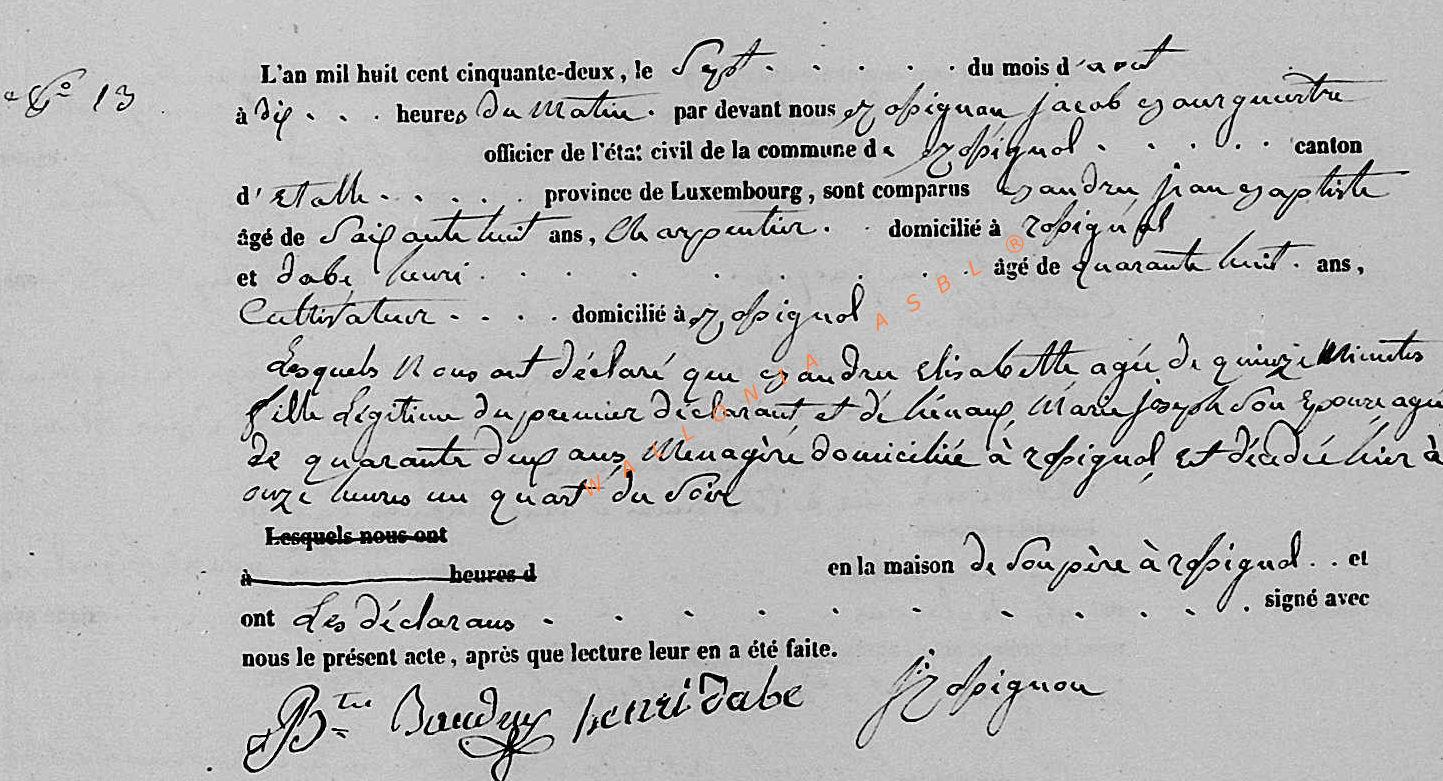 N° 13
L'an mil huit cent cinquante-deux, le Sept . . . . . du mois d'aout
à dix . . . heures du Matin . par devant nous Rossignon jacob Bourguem
officier de l'état civil de la commune de Rossignol . . . . . canton
d'Etalle . . . . . province de Luxembourg, sont comparus Baudru jean Baptiste
âgé de Soixante huit ans, Charpentier . . domicilié à rossignol
et dabe henri . . . . . . . . . âgé de quarante huit . ans,
Cultivateur . . . . domicilié à Rossignol
Lesquels Nous ont déclaré que Baudru Elisabette agée de quinze Minutes
fille Légitime du premier déclarant et de hénaux Marie joseph Son Epouze agée
de quarante deux ans Menagère domiciliée à rossignol, Est décédée hier à
onze heures un quart du Soir
Lesquels nous ont
à heures d en la maison de Son père à rossignol . . et
ont Les déclarans . . . . . . . . . . signé avec
nous le présent acte, après que lecture leur en a été faite.
Bte Baudru henri Dabe JRossignon
WALLONIA ASBL ®